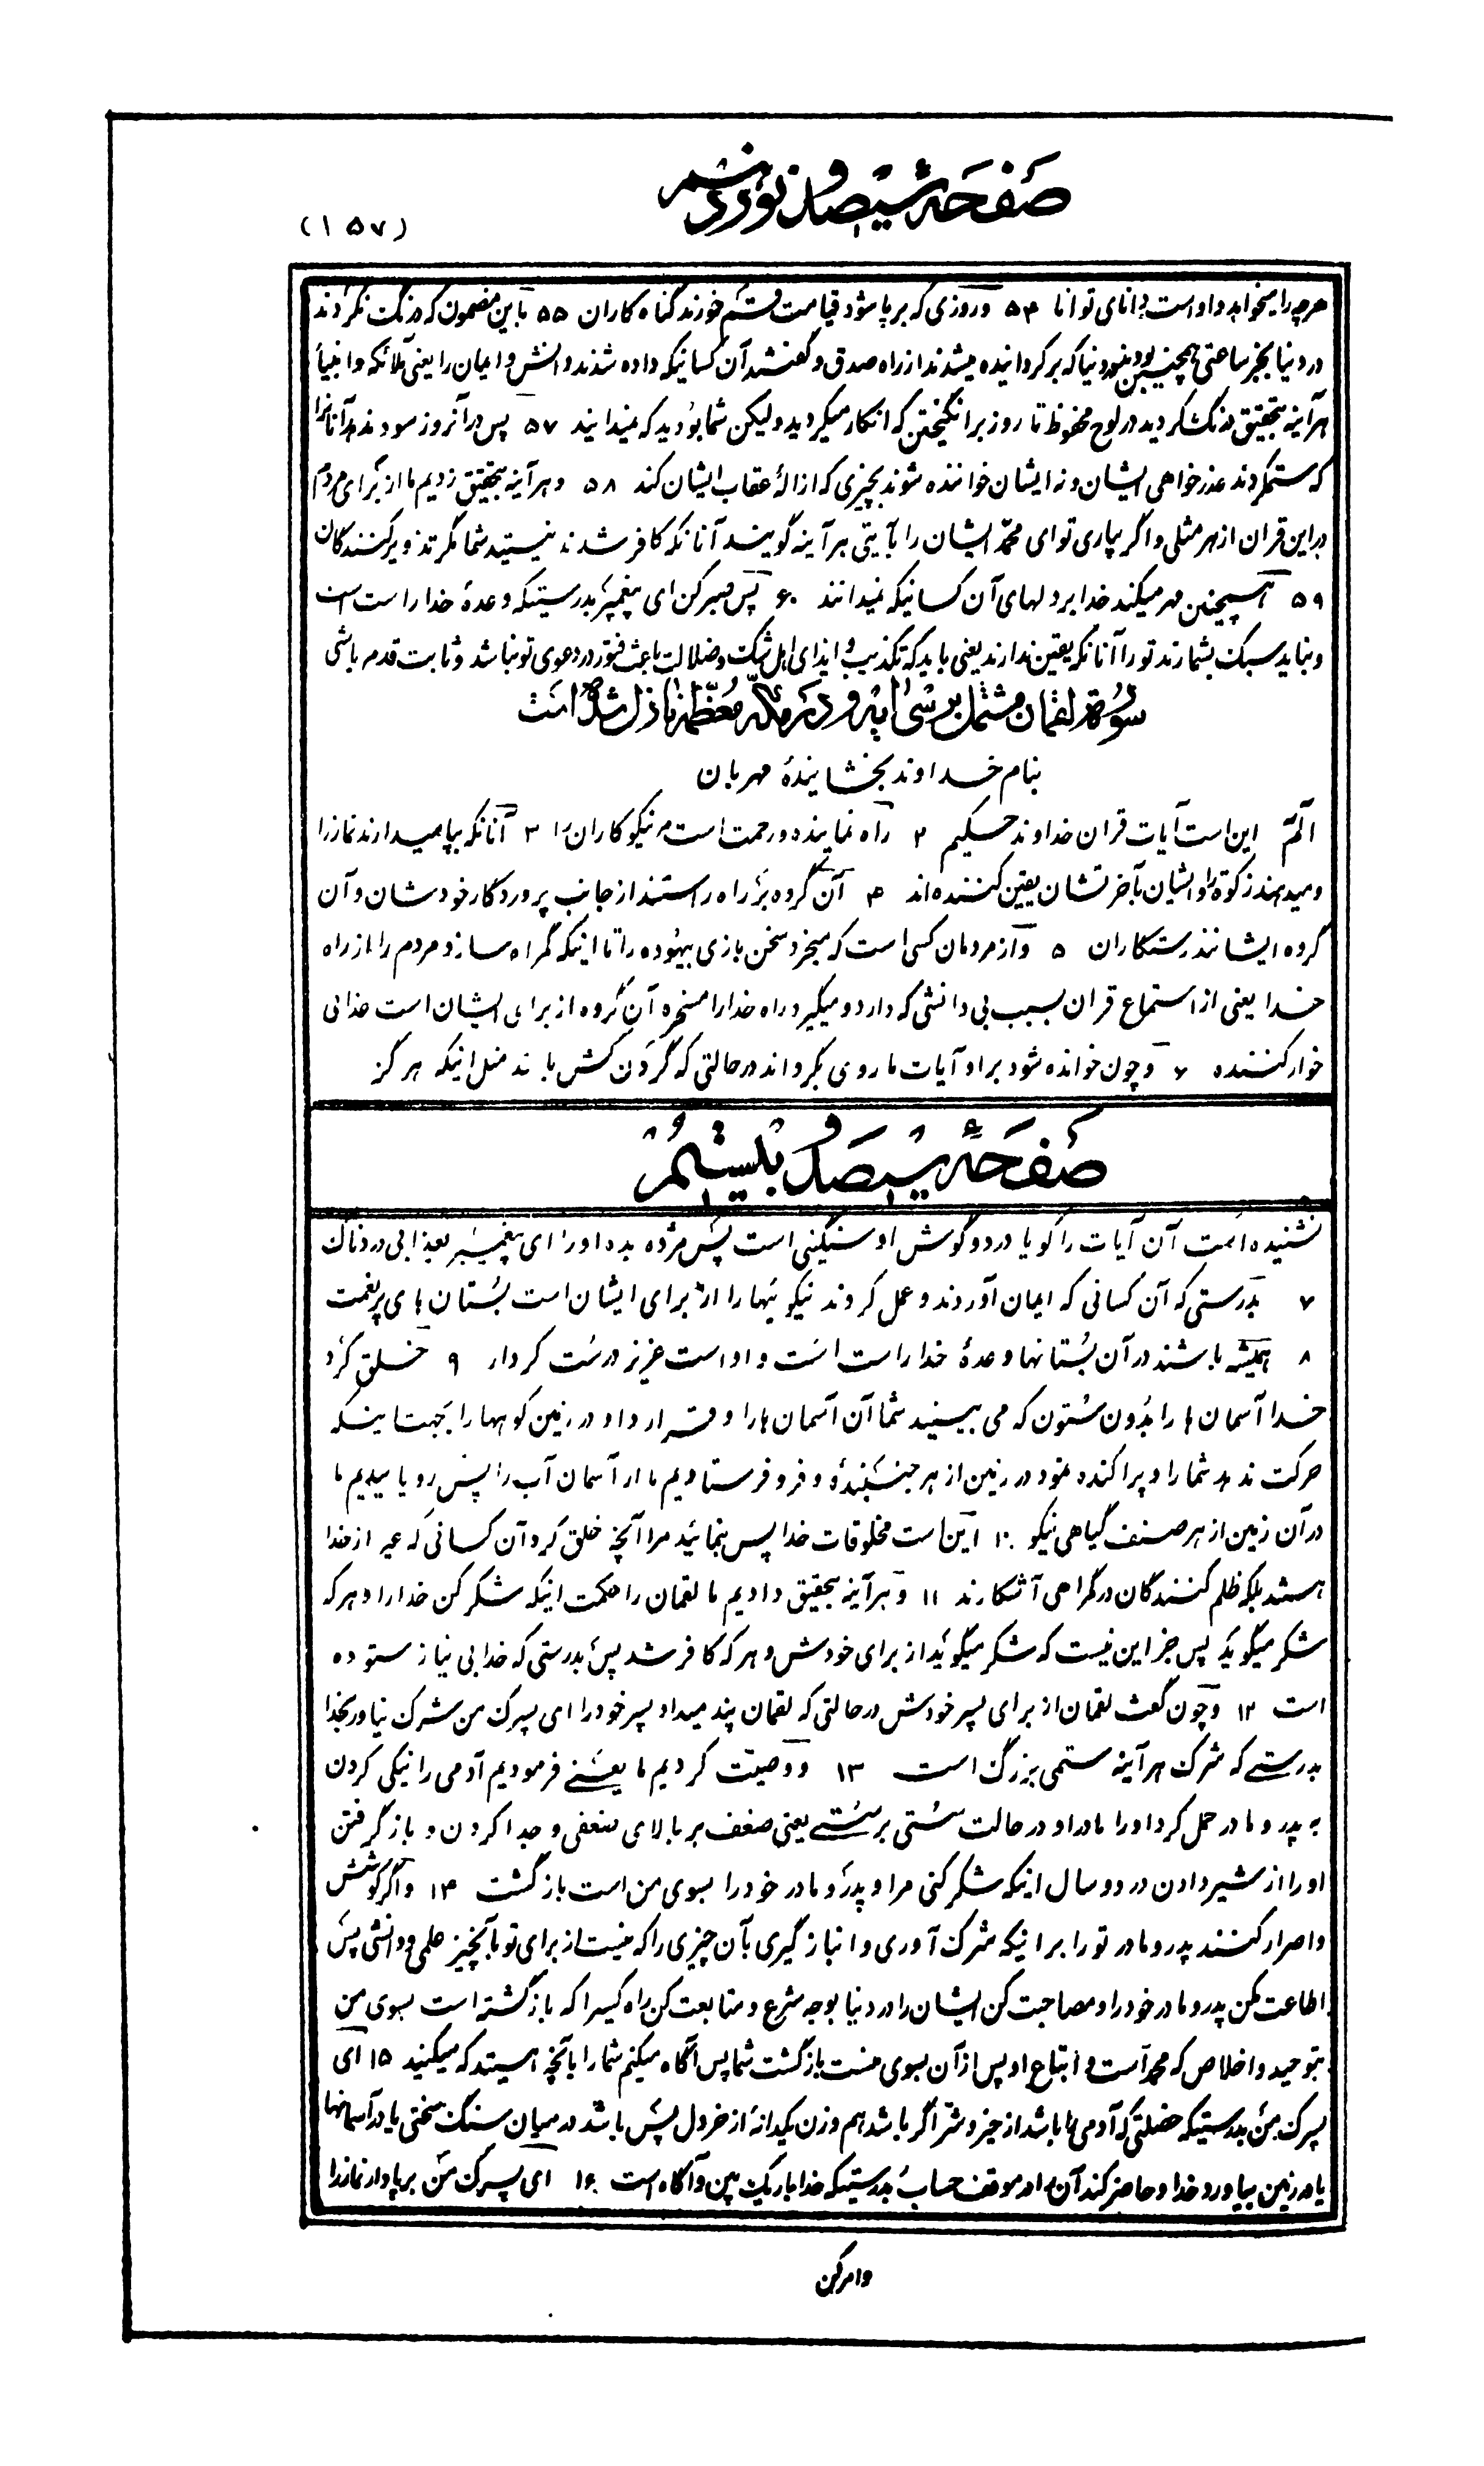 صفحهٔ سیصد و نوزدهم
(۱۵۷)
هرچه را میخواهد و اوست دانای توانا ۵۴ و روزی که برپا شود قیامت قسم خورند گناه کاران ۵۵ باین مضمون که درنگ نکردند
در دنیا بجز ساعتی همچنین بودند در دنیا که برگردانیده میشدند از راه صدق و گفتند آن کسانیکه داده شدند دانش و ایمان را یعنی ملائکه و انبیا
هرآینه بتحقیق درنگ کردید در لوح محفوظ تا روز برانگیختن که انکار میکردید ولیکن شما بودید که نمیدانید ۵۷ پس در آنروز سود ندهد آنانرا
که ستم کردند عذرخواهی ایشان و نه ایشان خوانده شوند بچیزی که ازالهٔ عقاب ایشان کند ۵۸ و هرآینه بتحقیق زدیم ما از برای مردم
در این قران از هر مثلی و اگر بیاری تو ای محمد ایشان را بآیتی هرآینه گویند آنانکه کافر شدند نیستید شما مگر تزویر کنندگان
۵۹ همچنین مهر میکند خدا بر دلهای آن کسانیکه نمیدانند ۶۰ پس صبر کن ای پیغمبر بدرستیکه وعدهٔ خدا راست است
و نباید سبک بشمارند تو را آنانکه یقین ندارند یعنی باید که تکذیب و ایذای اهل شرک و ضلالت باعث فتور در دعوی تو نباشد و ثابت قدم باشی
سورة لقمان مشتمل بر سی آیه و در مکهٔ معظمه نازل شده است
بنام خداوند بخشایندهٔ مهربان
الم این است آیات قران خداوند حکیم ۲ راه نماینده و رحمت است مر نیکوکاران را ۳ آنانکه بپا میدارند نماز را
و میدهند زکوة را و ایشان بآخرتشان یقین کننده‌اند ۴ آن گروه بر راه راستند از جانب پروردگار خودشان و آن
گروه ایشانند رستکاران ۵ و از مردمان کسی است که میخرد سخن بازی بیهوده را تا اینکه گمراه سازد مردم را از راه
خدا یعنی از استماع قران بسبب بی دانشی که دارد و میگیرد راه خدا را مسخره آن گروه از برای ایشان است عذابی
خوار کننده ۶ و چون خوانده شود بر او آیات ما روی بگرداند در حالتی که گردن کش باشد مثل اینکه هرگز
صفحهٔ سیصد و بیستم
نشنیده است آن آیات را گویا در دو گوش او سنگینی است پس مژده بده او را ای پیغمبر بعذابی دردناک
۷ بدرستی که آن کسانی که ایمان آوردند و عمل کردند نیکوئیها را از برای ایشان است بستان های پرنعمت
۸ همیشه باشند در آن بستانها وعدهٔ خدا راست است و او است عزیز درست کردار ۹ خلق کرد
خدا آسمان ها را بدون ستون که می بینید شما آن آسمان ها را و قرار داد در زمین کوهها را بجهت اینکه
حرکت ندهد شما را و پراکنده نمود در زمین از هر جنبنده و فرو فرستادیم ما از آسمان آب را پس رویانیدیم ما
در آن زمین از هر صنف گیاهی نیکو ۱۰ این است مخلوقات خدا پس بنمائید مرا آنچه خلق کرد آن کسانی که غیر از خدا
هستند بلکه ظلم کنندگان در گمراهی آشکارند ۱۱ و هرآینه بتحقیق دادیم ما لقمان را حکمت اینکه شکر کن خدا را و هر که
شکر میگوید پس جز این نیست که شکر میگوید از برای خودش و هر که کافر شد پس بدرستی که خدا بی نیاز ستوده
است ۱۲ و چون گفت لقمان از برای پسر خودش در حالتی که لقمان پند میداد پسر خود را ای پسرک من شرک نیاور بخدا
بدرستی که شرک هرآینه ستمی بزرگ است ۱۳ و وصیت کردیم ما یعنی فرمودیم آدمی را نیکی کردن
به پدر و مادر حمل کرد او را مادر او در حالت سستی بر سستی یعنی ضعف بر بالای ضعفی و جدا کردن و باز گرفتن
او را از شیر دادن در دو سال اینکه شکر کنی مرا و پدر و مادر خود را بسوی من است بازگشت ۱۴ و اگر کوشش
و اصرار کنند پدر و مادر تو را بر اینکه شرک آوری و انباز گیری بآن چیزی را که نیست از برای تو بآنچیز علمی و دانشی پس
اطاعت مکن پدر و مادر خود را و مصاحبت کن ایشان را در دنیا بوجه شرع و متابعت کن راه کسیرا که بازگشته است بسوی من
بتوحید و اخلاص که محمد است و اتباع او پس از آن بسوی منست بازگشت شما پس آگاه میکنم شما را بآنچه هستید که میکنید ۱۵ ای
پسرک من بدرستیکه خصلتی که آدمی را باشد از خیر و شر اگر باشد هم وزن یکدانهٔ از خردل پس باشد در میان سنگ سختی یا در آسمانها
یا در زمین بیاورد خدا و حاضر کند آن را در موقف حساب بدرستیکه خدا باریک بین و آگاه است ۱۶ ای پسرک من برپا دار نماز را
وامر کن